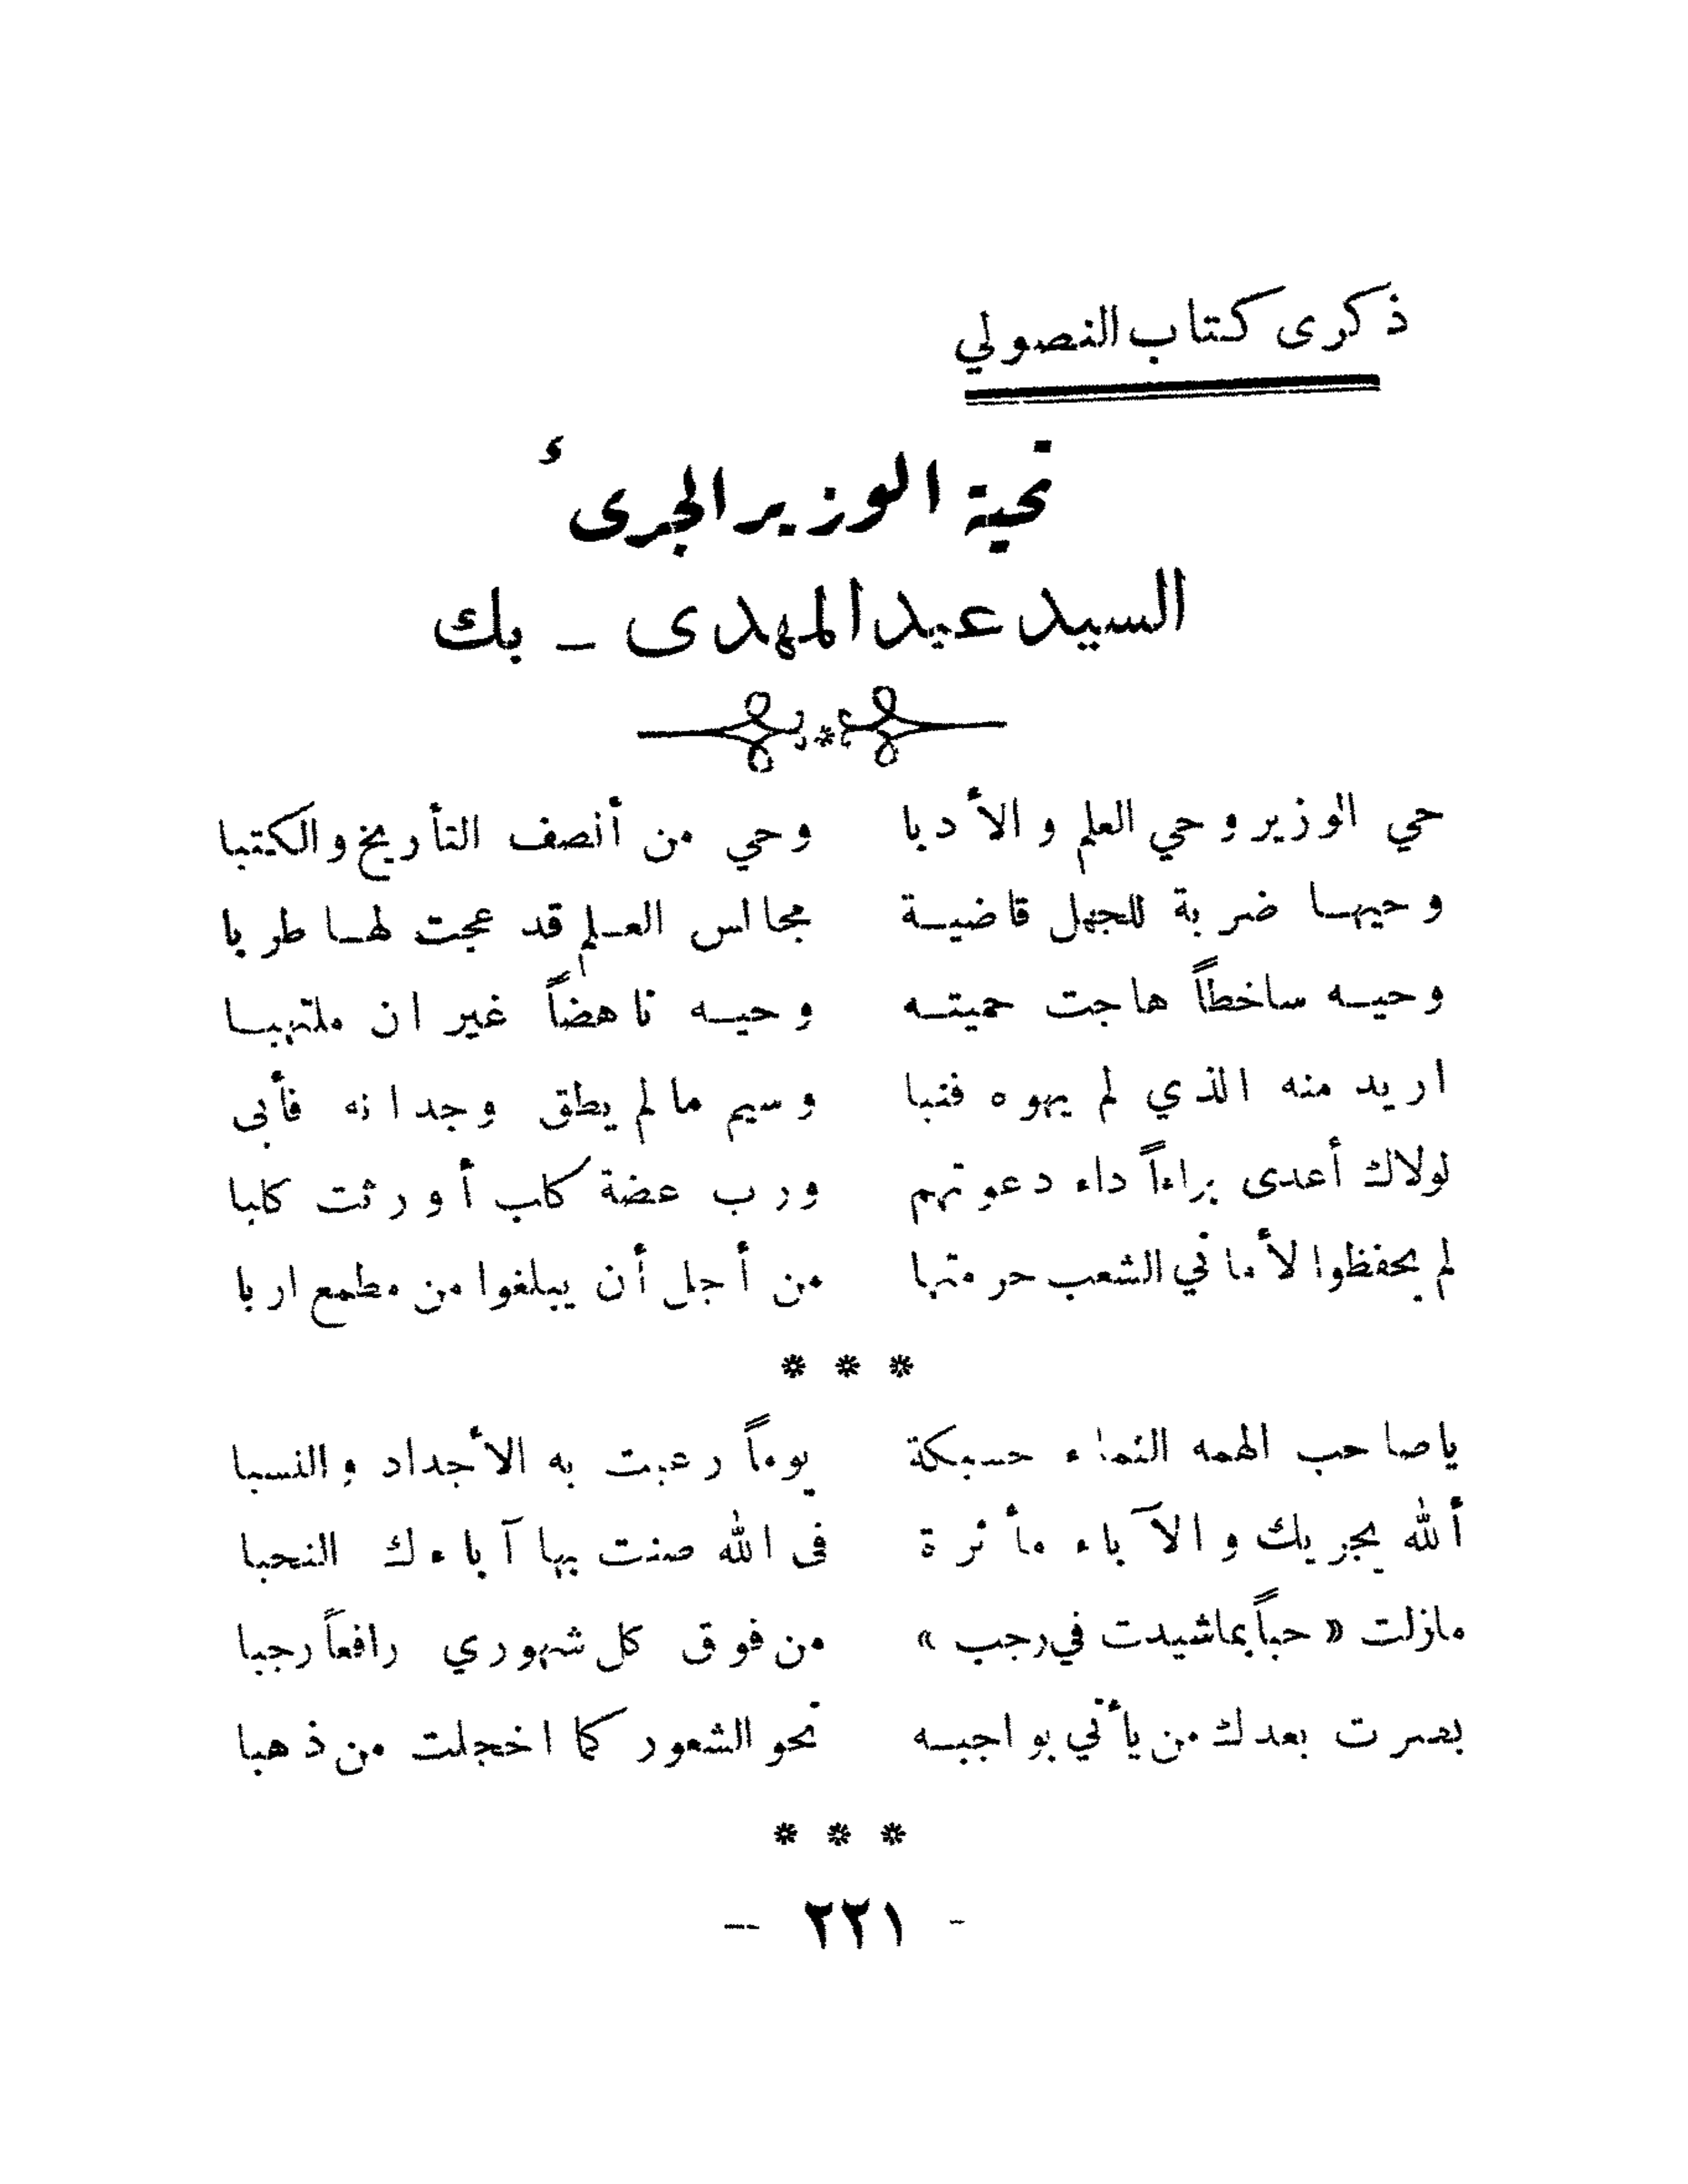 ذكرى كتاب النصولي
تحية الوزير الجرىء
السيد عبد المهدى - بك
حي الوزير وحي العلم والأدبا وحي من أنصف التأريخ والكتبا
وحيهـا ضربة للجهل قاضيـة مجالس العـلم قد عجت لهـا طربا
وحيـه ساخطاً هاجت حميتـه وحيـه ناهضاً غيران ملتهبـا
اريد منه الذي لم يهوه فنبا وسيم مالم يطق وجدانه فأبى
لولاك أعدى براءاً داء دعوتهم ورب عضة كلب أورثت كلبا
لم يحفظوا لأماني الشعب حرمتها من أجل أن يبلغوا من مطمع اربا
* * *
ياصاحب الهمه الشماء حسبكة يوماً رعيت به الأجداد والنسبا
ألله يجزيك والآباء مأثرة فى الله صنت بها آباءك النجبا
مازلت « حباً بماشيدت في رجب » من فوق كل شهوري رافعاً رجبا
بصرت بعدك من يأتي بواجبـه نحو الشعور كما اخجلت من ذهبا
* * *
- ٢٢١ -